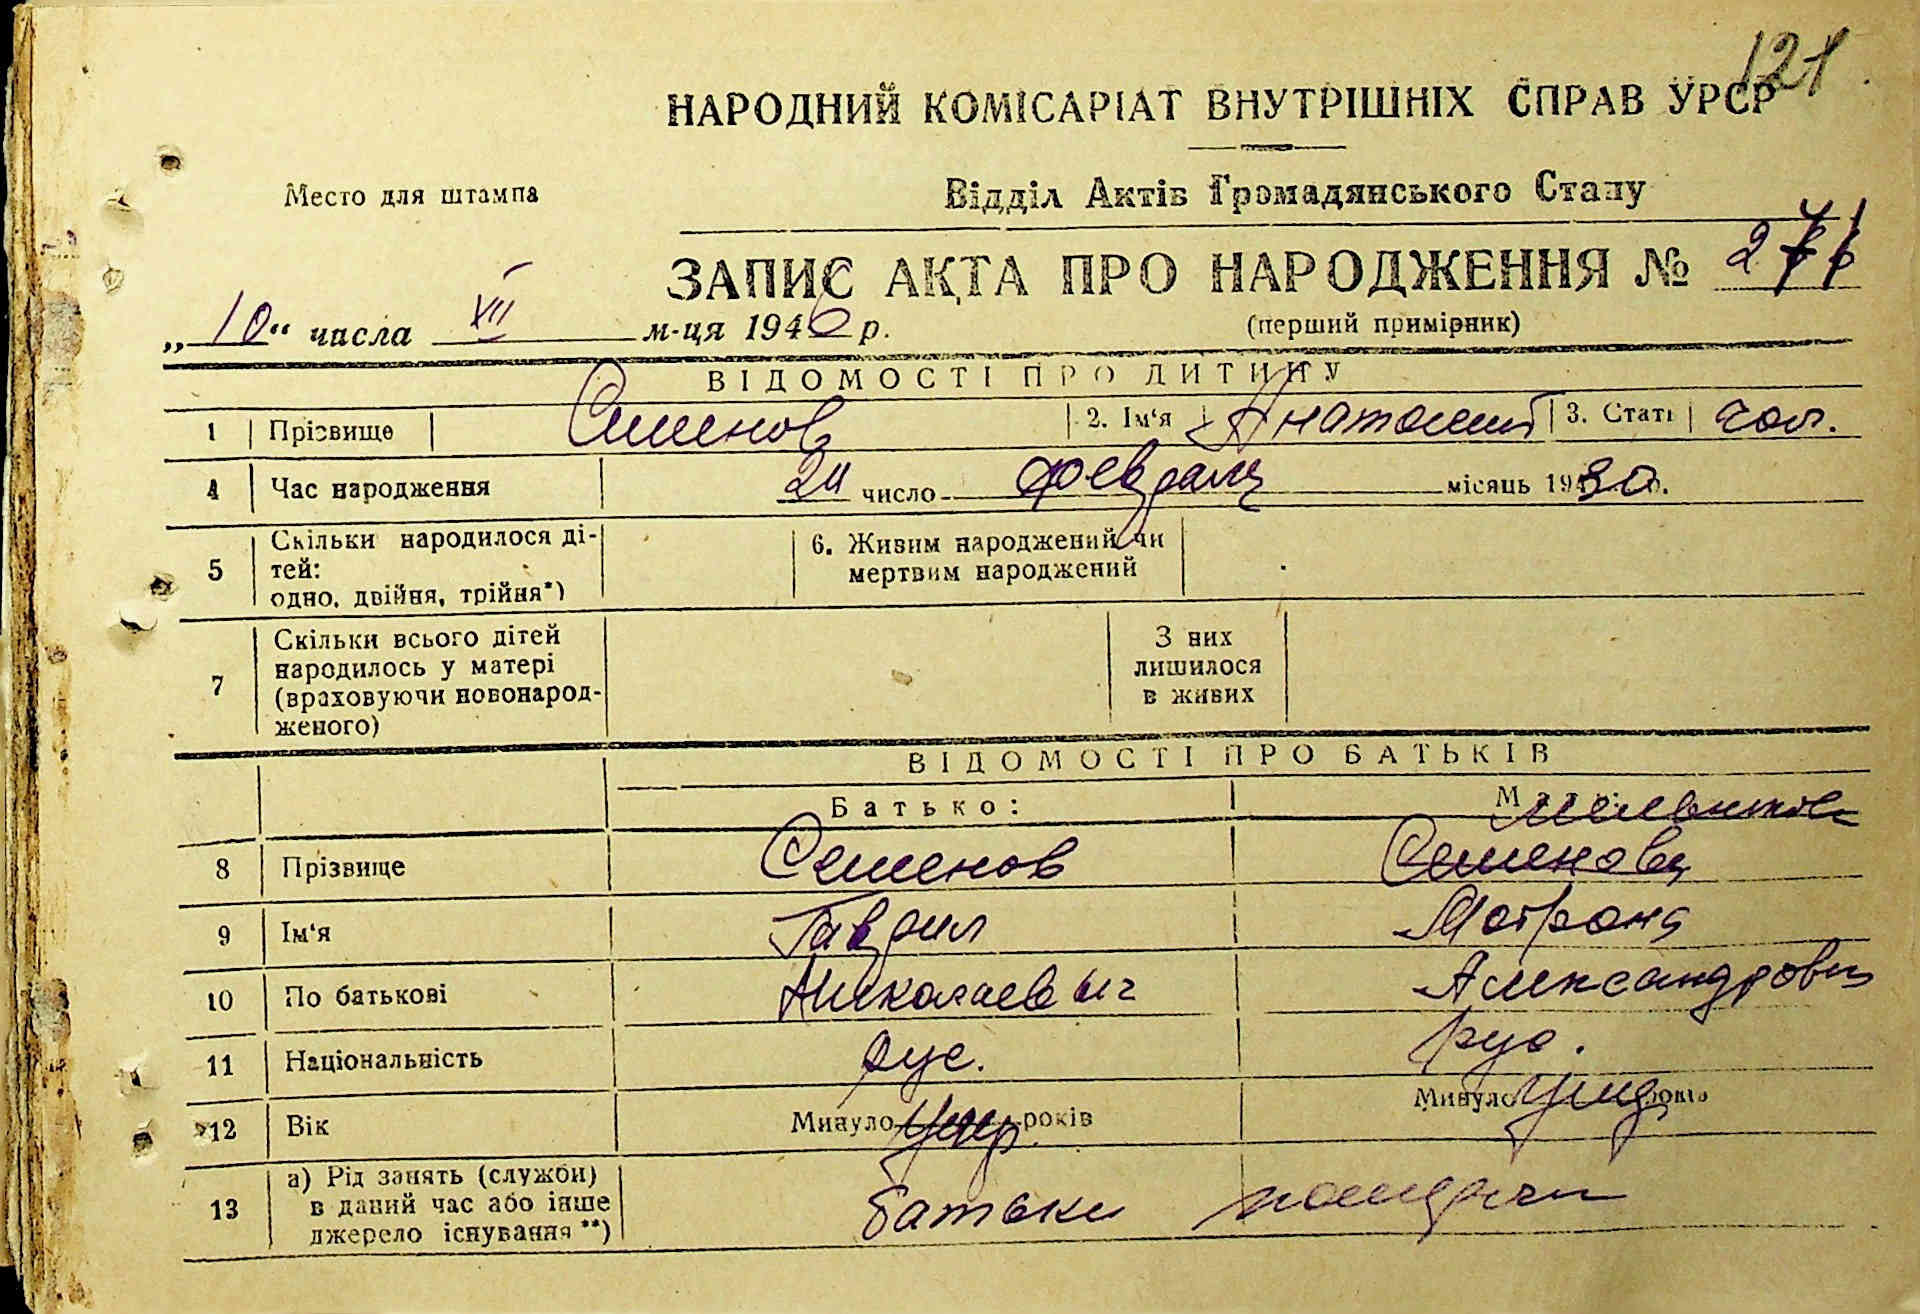 121
НАРОДНИЙ КОМІСАРІАТ ВНУТРІШНІХ СПРАВ УРСР
Место для штампа
Відділ Актів Громадянського Стану
ЗАПИС АКТА ПРО НАРОДЖЕННЯ №
„10“ числа XII м-ця 1946 р.
(перший примірник)
ВІДОМОСТІ ПРО ДИТИНУ
1 Прізвище Семенов 2. Ім'я Анатолий 3. Стать чол.
4 Час народження 24 число февраля місяць 1930 р.
5 Скільки народилося ді-
тей:
одно, двійня, трійня*)
6. Живим народжений чи
мертвим народжений
7 Скільки всього дітей
народилось у матері
(враховуючи новонарод-
женого)
З них
лишилося
в живих
ВІДОМОСТІ ПРО БАТЬКІВ
Батько: Мати:
8 Прізвище Семенов Семенова
9 Ім'я Гаврил Мотрона
10 По батькові Николаевыч Александровна
11 Національність рус. рус.
12 Вік Минуло років Минуло років
13 а) Рід занять (служби)
в даний час або інше
джерело існування **)
батьки